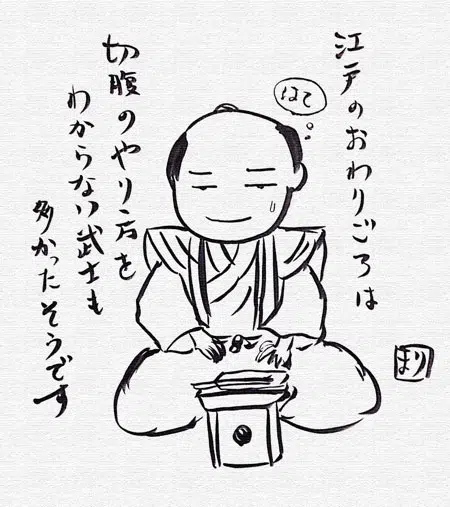 江戸のおわりごろは
はて
切腹のやり方を
わからない武士も
多かったそうです
まり